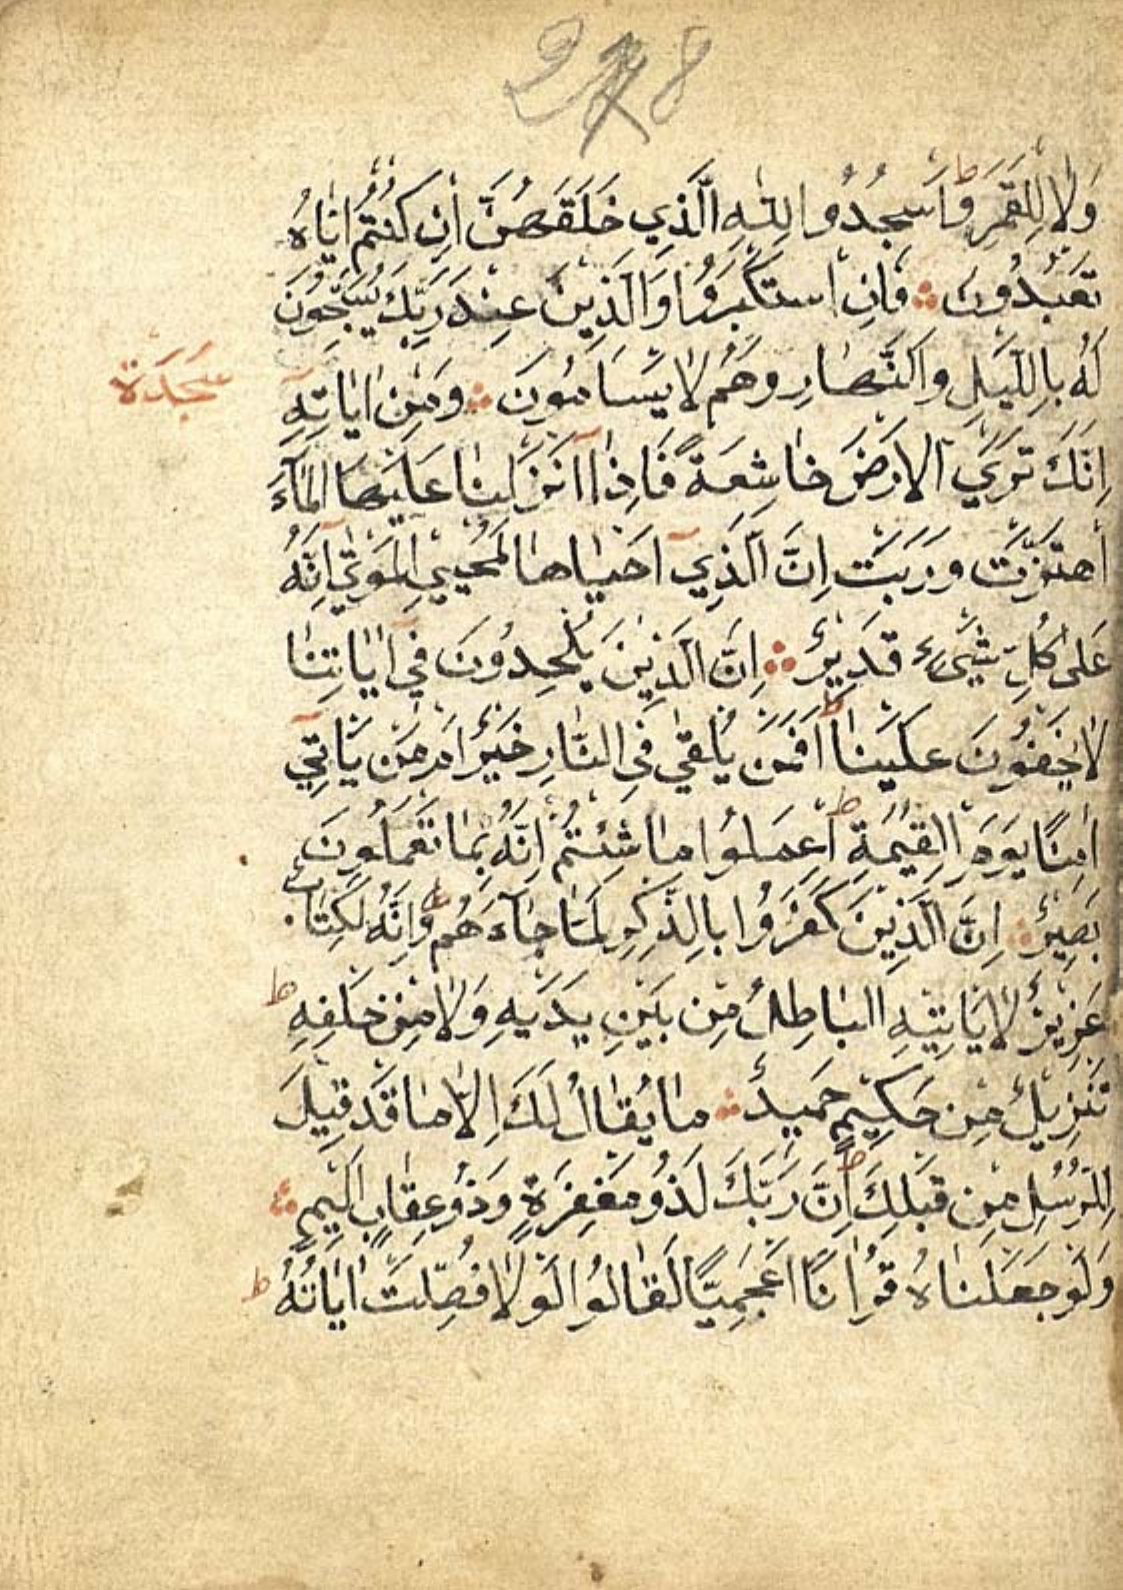 278
وَلَا لِلْقَمَرِ ط وَاسْجُدُوا لِلّٰهِ الَّذِي خَلَقَهُنَّ اِنْ كُنْتُمْ اِيَّاهُ
تَعْبُدُونَ ۞ فَاِنِ اسْتَكْبَرُوا وَالَّذِينَ عِنْدَ رَبِّكَ يُسَبِّحُونَ
لَهُ بِاللَّيْلِ وَالنَّهَارِ وَهُمْ لَا يَسْاَمُونَ ۞ وَمِنْ اٰيَاتِهِ
سَجْدَة
اِنَّكَ تَرَي الْاَرْضَ خَاشِعَةً فَاِذَا اَنْزَلْنَا عَلَيْهَا الْمَآءَ
اهْتَزَّتْ وَرَبَتْ اِنَّ الَّذِي اَحْيَاهَا لَمُحْيِي الْمَوْتٰي اِنَّهُ
عَلٰى كُلِّ شَيْءٍ قَدِيرٌ ۞ اِنَّ الَّذِينَ يُلْحِدُونَ فِي اٰيَاتِنَا
لَا يَخْفَوْنَ عَلَيْنَا ط اَفَمَنْ يُلْقٰي فِي النَّارِ خَيْرٌ اَمْ مَنْ يَاْتِي
اٰمِنًا يَوْمَ الْقِيٰمَةِ ط اِعْمَلُوا مَا شِئْتُمْ اِنَّهُ بِمَا تَعْمَلُونَ
بَصِيرٌ ۞ اِنَّ الَّذِينَ كَفَرُوا بِالذِّكْرِ لَمَّا جَآءَهُمْ ط وَاِنَّهُ لَكِتَابٌ
عَزِيزٌ لَا يَاْتِيهِ الْبَاطِلُ مِنْ بَيْنِ يَدَيْهِ وَلَا مِنْ خَلْفِهِ ط
تَنْزِيلٌ مِنْ حَكِيمٍ حَمِيدٍ ۞ مَا يُقَالُ لَكَ اِلَّا مَا قَدْ قِيلَ
لِلرُّسُلِ مِنْ قَبْلِكَ ط اِنَّ رَبَّكَ لَذُو مَغْفِرَةٍ وَذُو عِقَابٍ اَلِيمٍ ۞
وَلَوْ جَعَلْنَاهُ قُرْاٰنًا اَعْجَمِيًّا لَقَالُوا لَوْلَا فُصِّلَتْ اٰيَاتُهُ ط